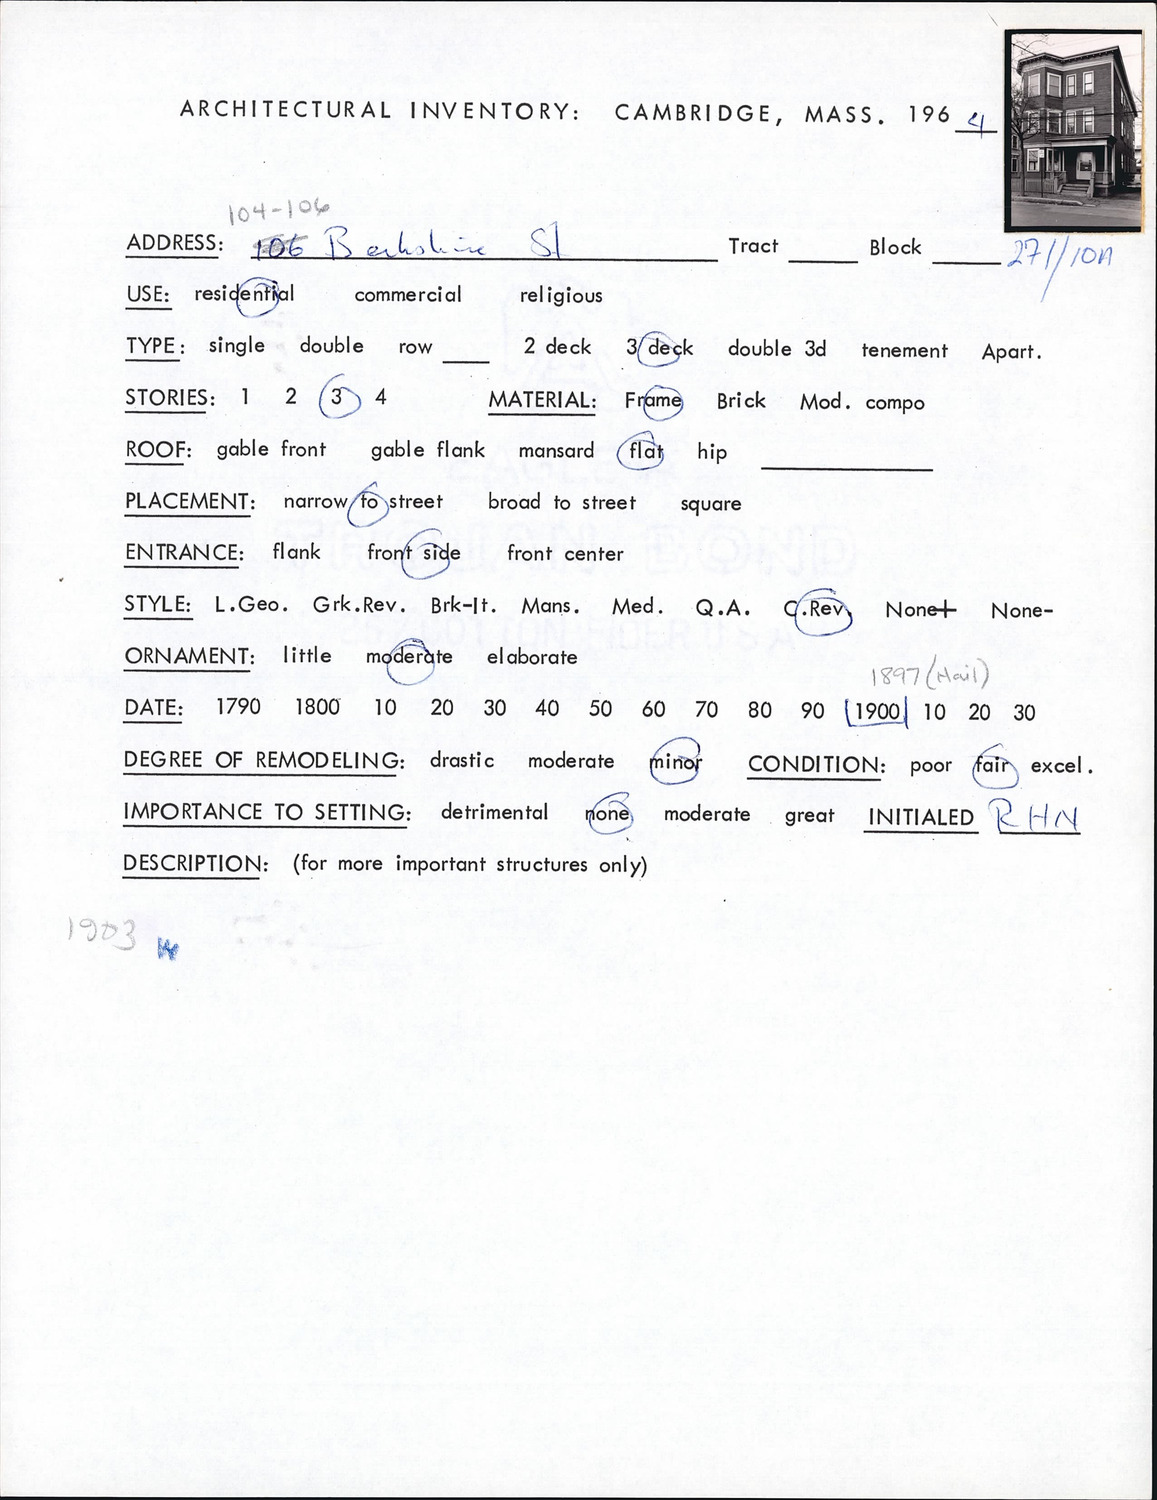 ARCHITECTURAL INVENTORY: CAMBRIDGE, MASS. 1964
104-106
ADDRESS: 106 Berkshire St Tract ____ Block ____ 271/10A
USE: residential commercial religious
TYPE: single double row ___ 2 deck 3 deck double 3d tenement Apart.
STORIES: 1 2 3 4 MATERIAL: Frame Brick Mod. compo
ROOF: gable front gable flank mansard flat hip ____
PLACEMENT: narrow to street broad to street square
ENTRANCE: flank front side front center
STYLE: L.Geo. Grk.Rev. Brk-It. Mans. Med. Q.A. C.Rev. None+ None-
ORNAMENT: little moderate elaborate
1897 (Hail)
DATE: 1790 1800 10 20 30 40 50 60 70 80 90 1900 10 20 30
DEGREE OF REMODELING: drastic moderate minor CONDITION: poor fair excel.
IMPORTANCE TO SETTING: detrimental none moderate great INITIALED RHN
DESCRIPTION: (for more important structures only)
1903